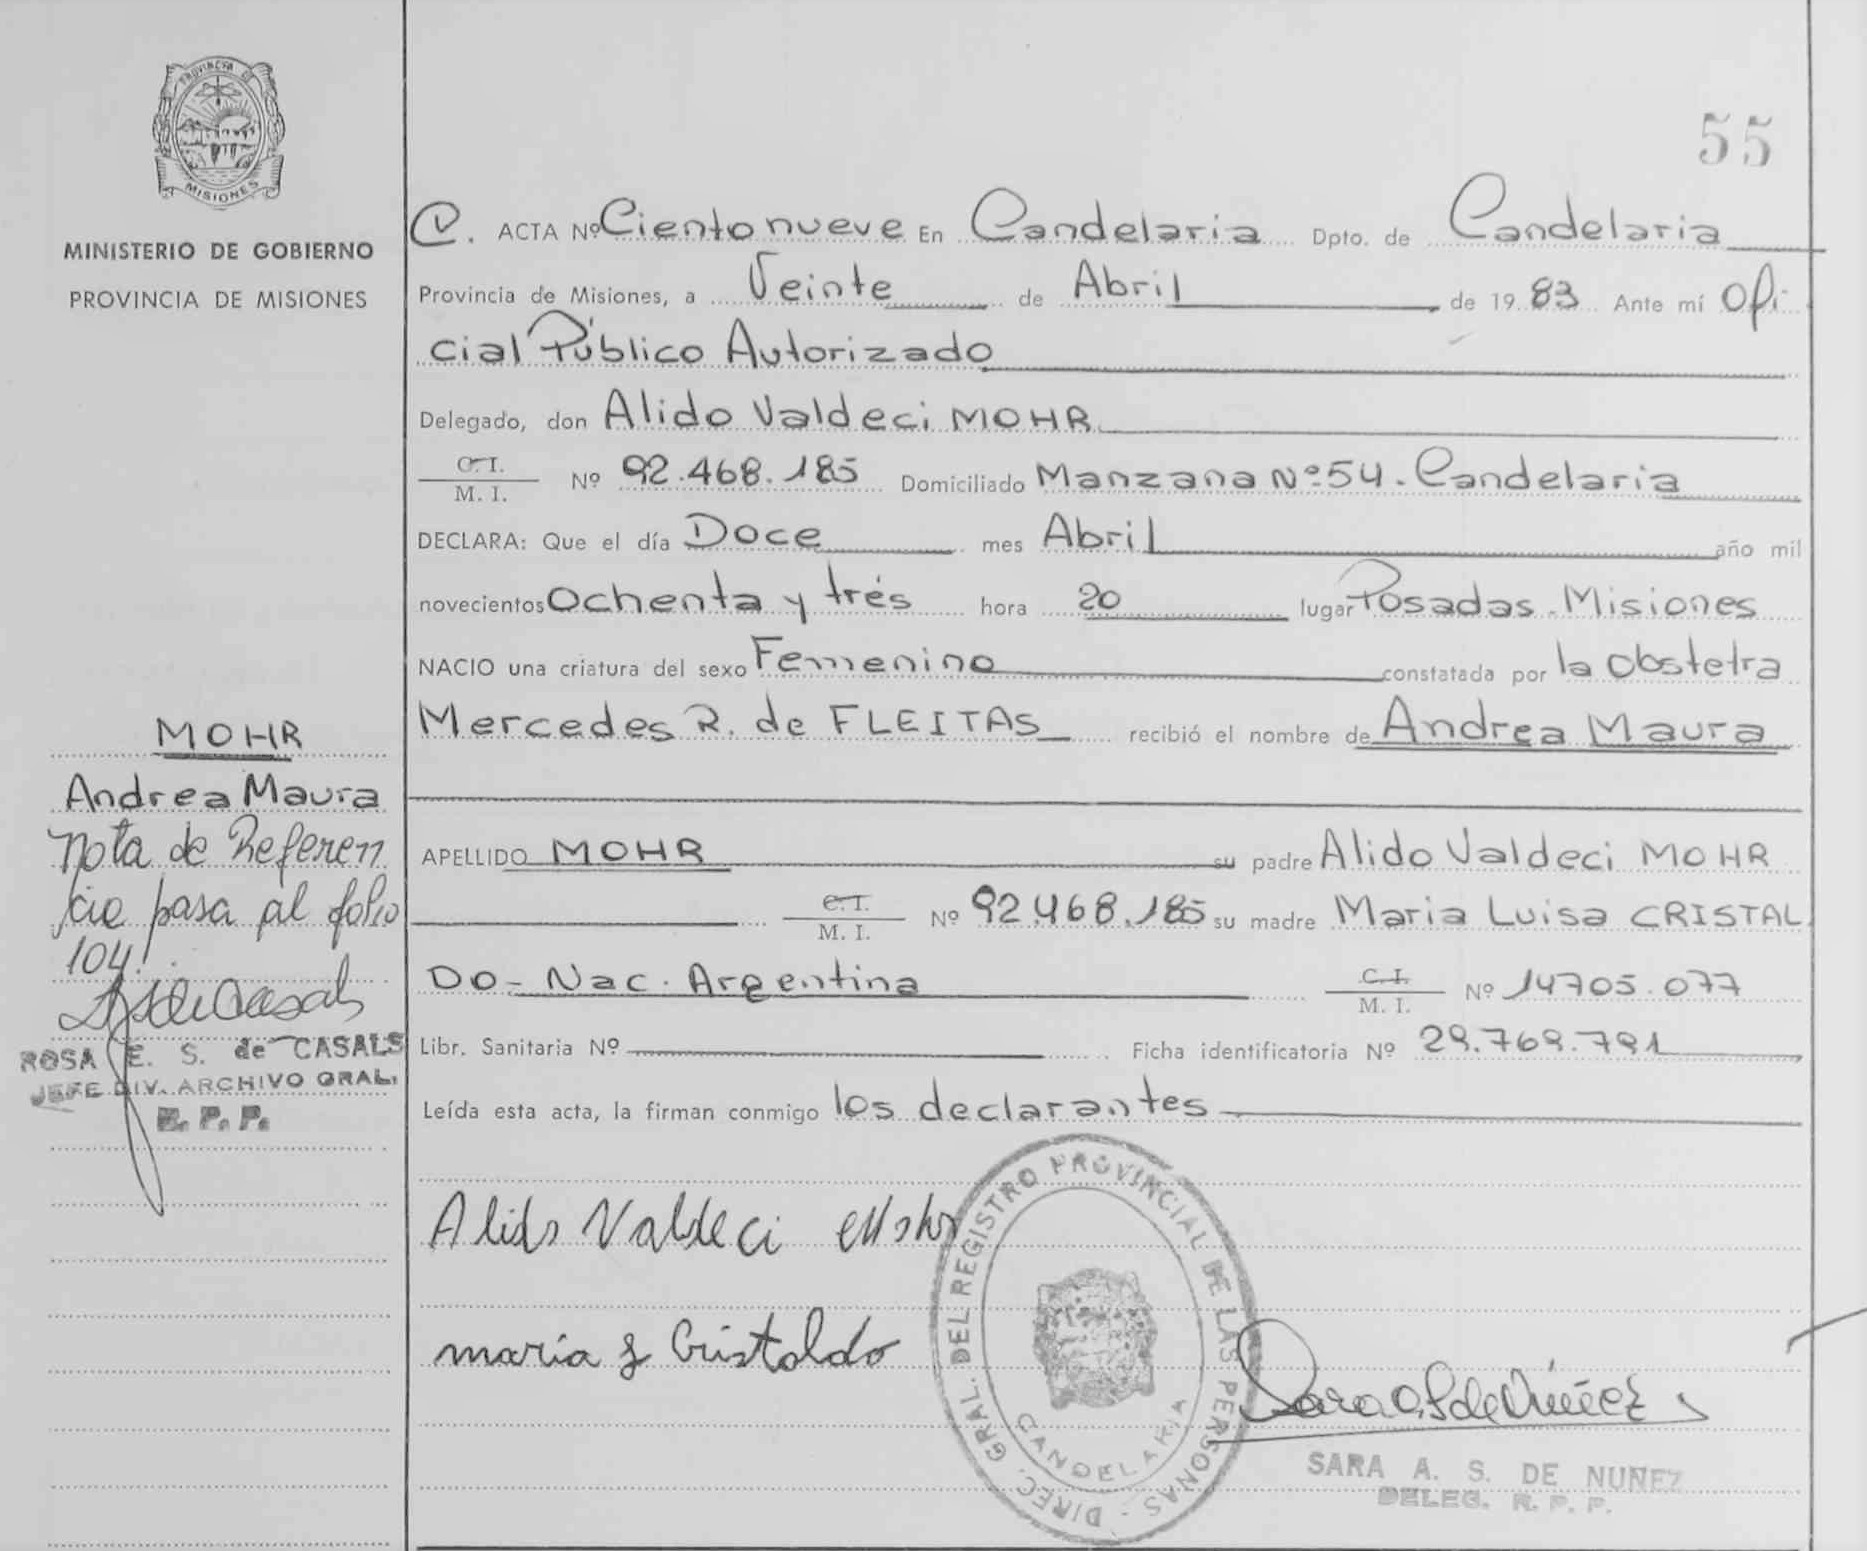 PROVINCIA DE
MISIONES
MINISTERIO DE GOBIERNO
PROVINCIA DE MISIONES
55
C. ACTA Nº Ciento nueve En Candelaria Dpto. de Candelaria
Provincia de Misiones, a Veinte de Abril de 1983 Ante mí Ofi
cial Público Autorizado
Delegado, don Alido Valdeci MOHR
C.I.
M. I. Nº 92.468.185 Domiciliado Manzana Nº 54. Candelaria
DECLARA: Que el día Doce mes Abril año mil
novecientos Ochenta y trés hora 20 lugar Posadas. Misiones
NACIO una criatura del sexo Femenino constatada por la Obstetra
Mercedes R. de FLEITAS recibió el nombre de Andrea Maura
APELLIDO MOHR su padre Alido Valdeci MOHR
C.I.
M. I. Nº 92.468.185 su madre Maria Luisa CRISTAL
DO- Nac. Argentina C.I.
M. I. Nº 14705.077
Libr. Sanitaria Nº Ficha identificatoria Nº 29.769.791
Leída esta acta, la firman conmigo los declarantes
MOHR
Andrea Maura
Nota de Referen
cia pasa al folio
104!
ROSA E. S. de CASALS
JEFE DIV. ARCHIVO GRAL.
R. P. P.
Alido Valdeci Mohr
maría L Cristaldo
DIREC. GRAL. DEL REGISTRO PROVINCIAL DE LAS PERSONAS -
CANDELARIA
Sara A. S. de Núñez
SARA A. S. DE NUÑEZ
DELEG. R. P. P.